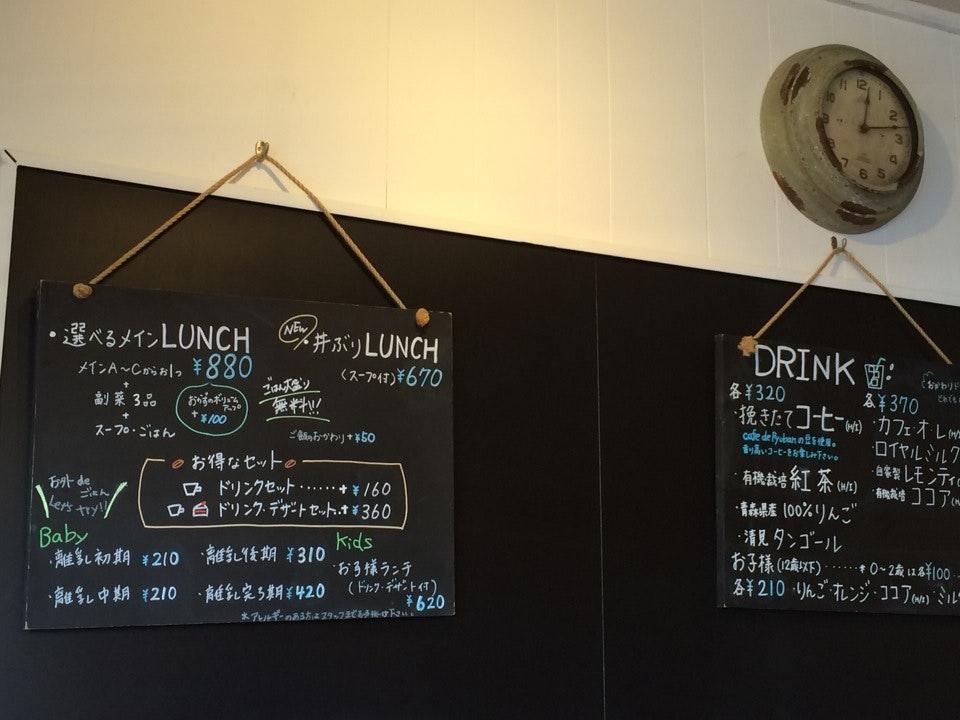 ・選べるメインLUNCH
メインA～Cからお1つ ¥880
+
副菜3品
+
スープ・ごはん
おかずのボリューム
アップ
+¥100
ごはん大盛り
無料!!!
NEW
・丼ぶりLUNCH
(スープ付)¥670
ご飯のおかわり+¥50
お得なセット
ドリンクセット・・・・・・+¥160
ドリンク・デザートセット・+¥360
おうち de
ごはん
Let's
トライ!!
Baby
・離乳初期 ¥210
・離乳後期 ¥310
・離乳中期 ¥210
・離乳完了期 ¥420
Kids
・お子様ランチ
(ドリンク・デザート付)
¥620
※アレルギーのある方はスタッフまでお手掛け下さい。
12
1
2
3
4
5
6
7
8
DRINK
各¥320
・挽きたてコーヒー(H/I)
cafe de Ryubanの豆を使用。
香り高いコーヒーをお楽しみ下さい。
・有機栽培 紅茶(H/I)
・青森県産 100%りんご
・清見タンゴール
各¥370
・カフェ・オ・レ(H/
・ロイヤルミルク
・自家製レモンティ(
・有機栽培 ココア(H
おかわりド
お子様(12歳以下)・・・・・・* 0～2歳は各¥100
各¥210・りんご・オレンジ・ココア(H/I)・ミル